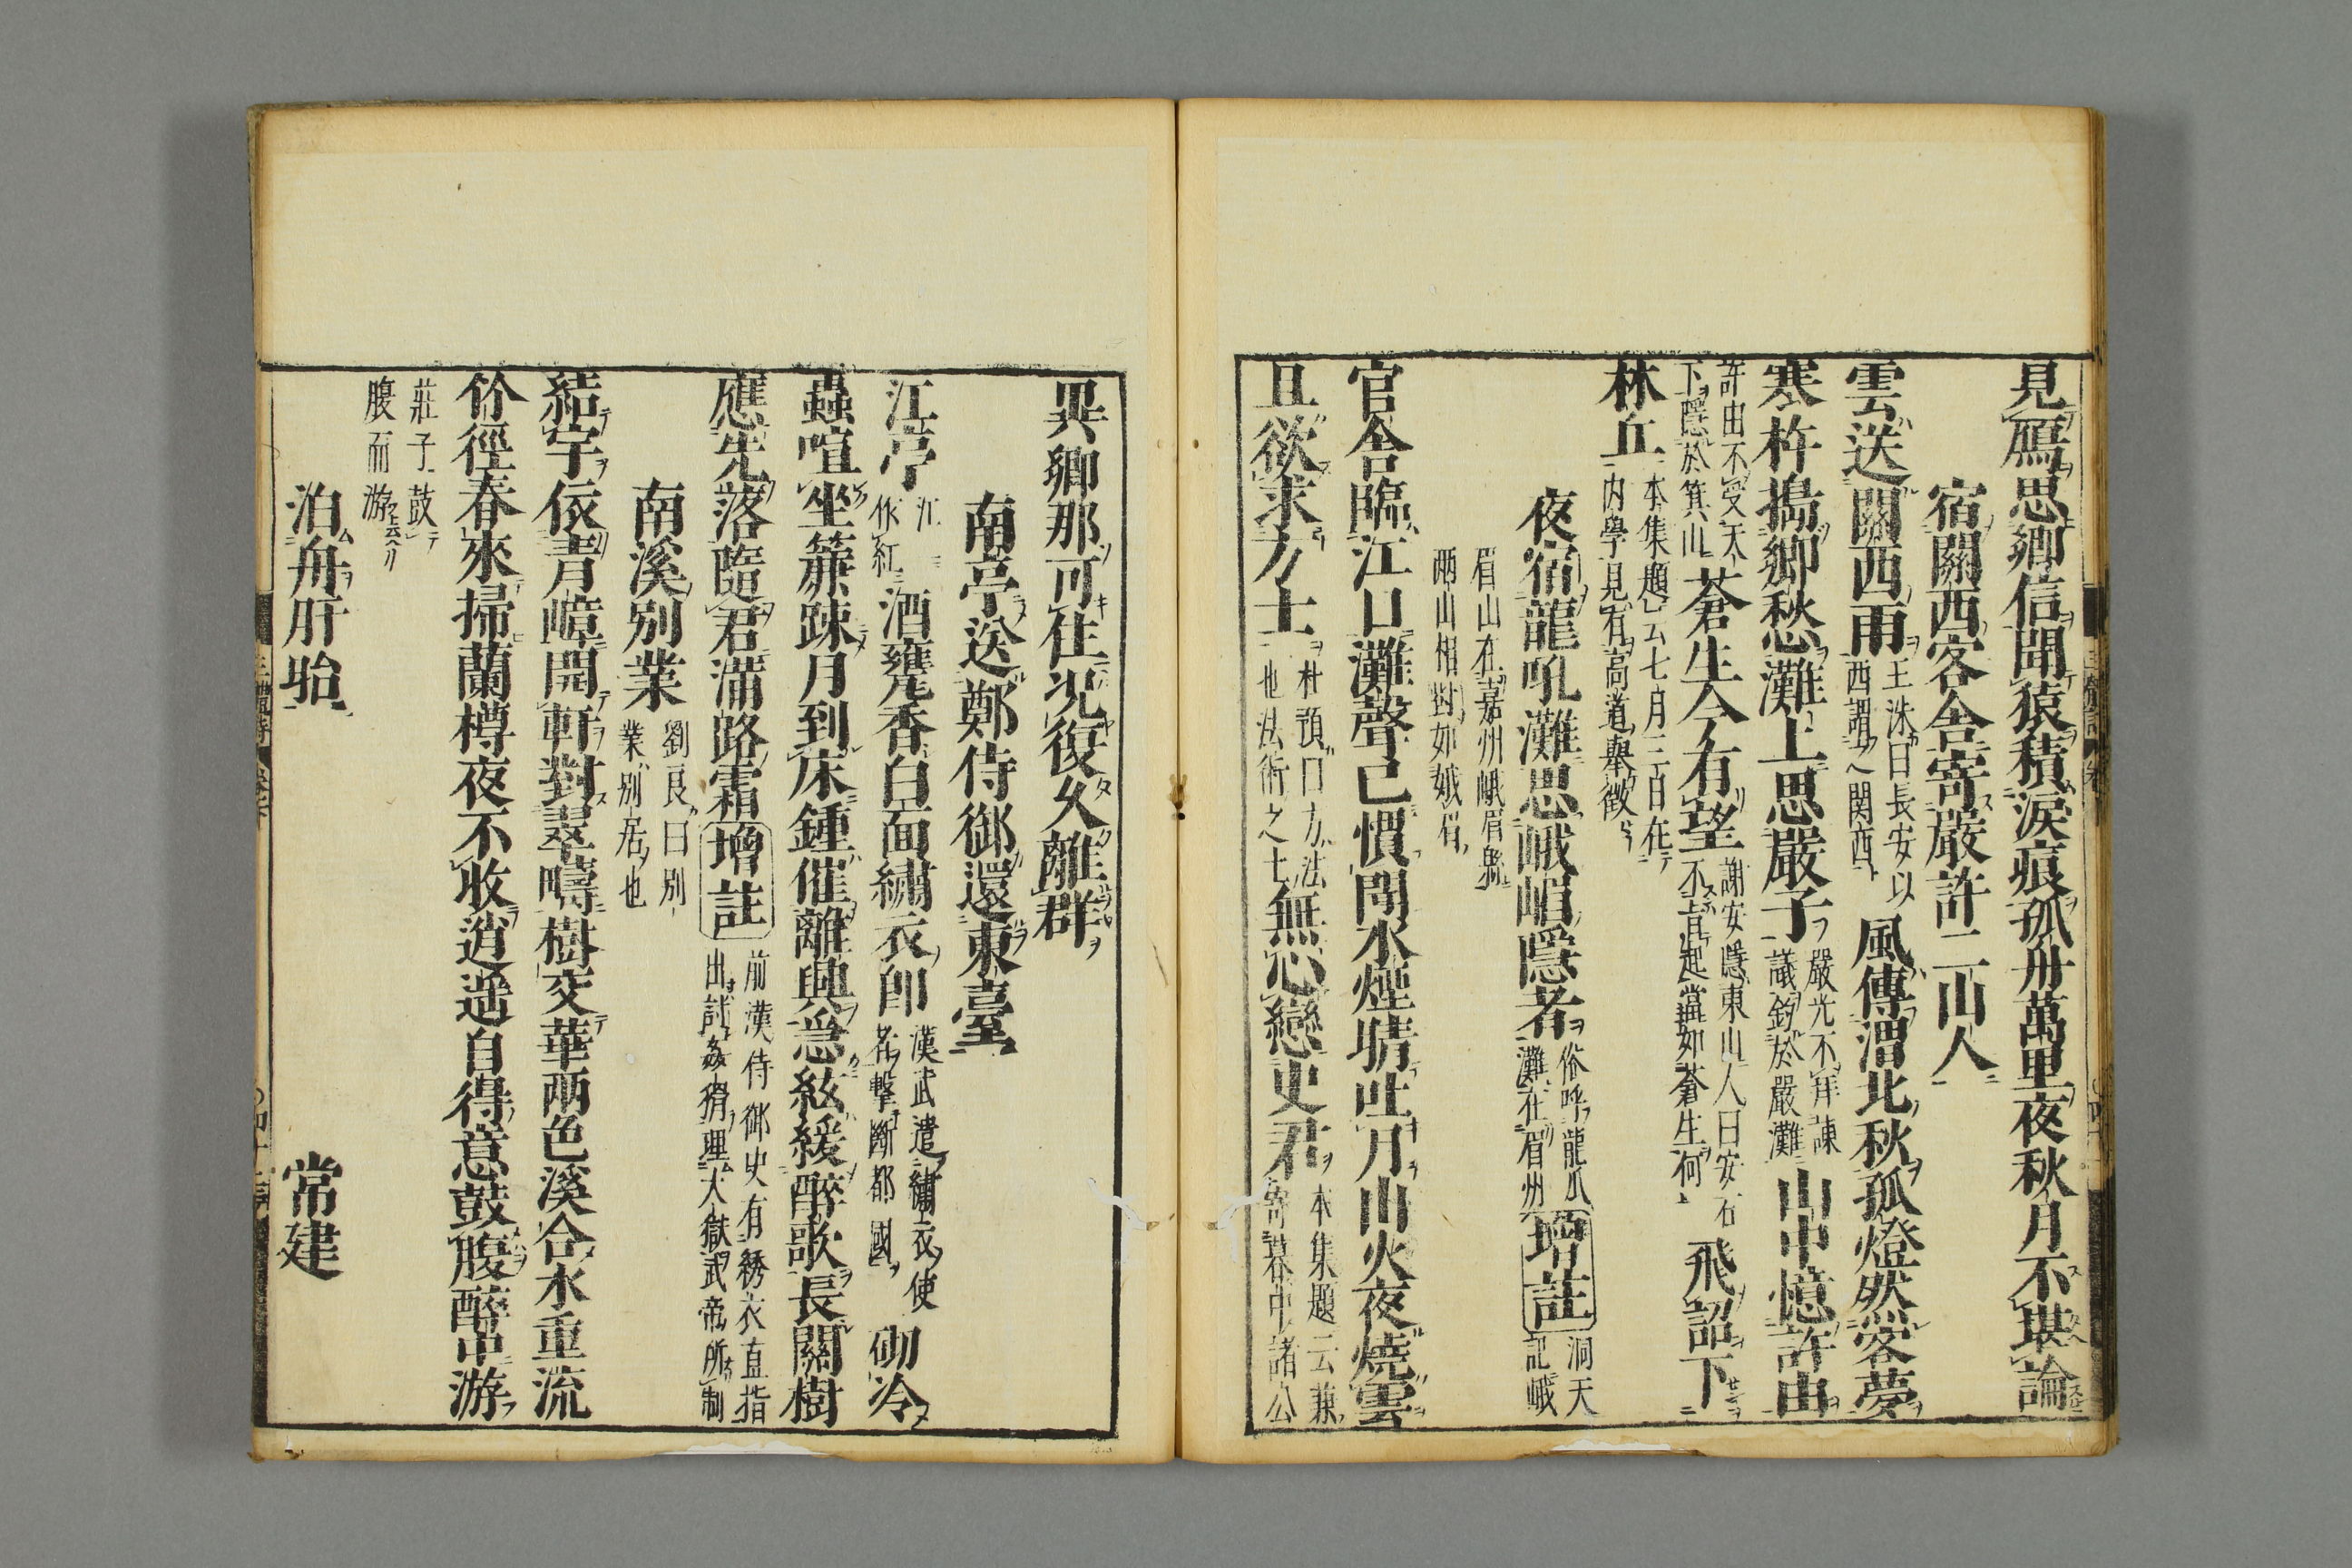 見雁思鄉信聞猿積淚痕孤舟萬里夜秋月不堪論
宿關西客舍寄嚴許二山人
雲送關西雨王洙曰長安以西謂之関西風傳渭北秋孤燈然客夢
寒杵搗鄉愁灘上思嚴子嚴光不拜諫議釣於嚴灘山中憶許由
許由不受天下隱於箕山蒼生今有望謝安隱東山人曰安石不肯起當如蒼生何飛詔下
林丘本集題云七月三日在内學見有高道舉徵
夜宿龍吼灘思峨嵋隱者俗呼龍爪灘在眉州增註洞天記峨
眉山在嘉州峨眉縣兩山相對如娥眉
官舍臨江口灘聲已慣聞水煙晴吐月山火夜燒雲
且欲求方士杜預曰方法也法術之士無心戀史君本集題云兼寄幕中諸公
異鄉那可住况復久離群
南亭送鄭侍御還東臺
江亭江作紅酒甕香白面繡衣郎漢武遣繡衣使者擊斷郡國砌冷
蟲喧坐簾踈月到床鍾催離興急絃緩醉歌長關樹
應先落隨君滿路霜增註前漢侍御史有綉衣直指出討姦猾理大獄武帝所制
南溪別業劉良曰別業別居也
結宇依青嶂開軒對翠疇樹交華兩色溪合水重流
竹徑春來掃蘭樽夜不收逍遥自得意鼓腹醉中游
莊子鼓腹而游
泊舟盱眙 常建